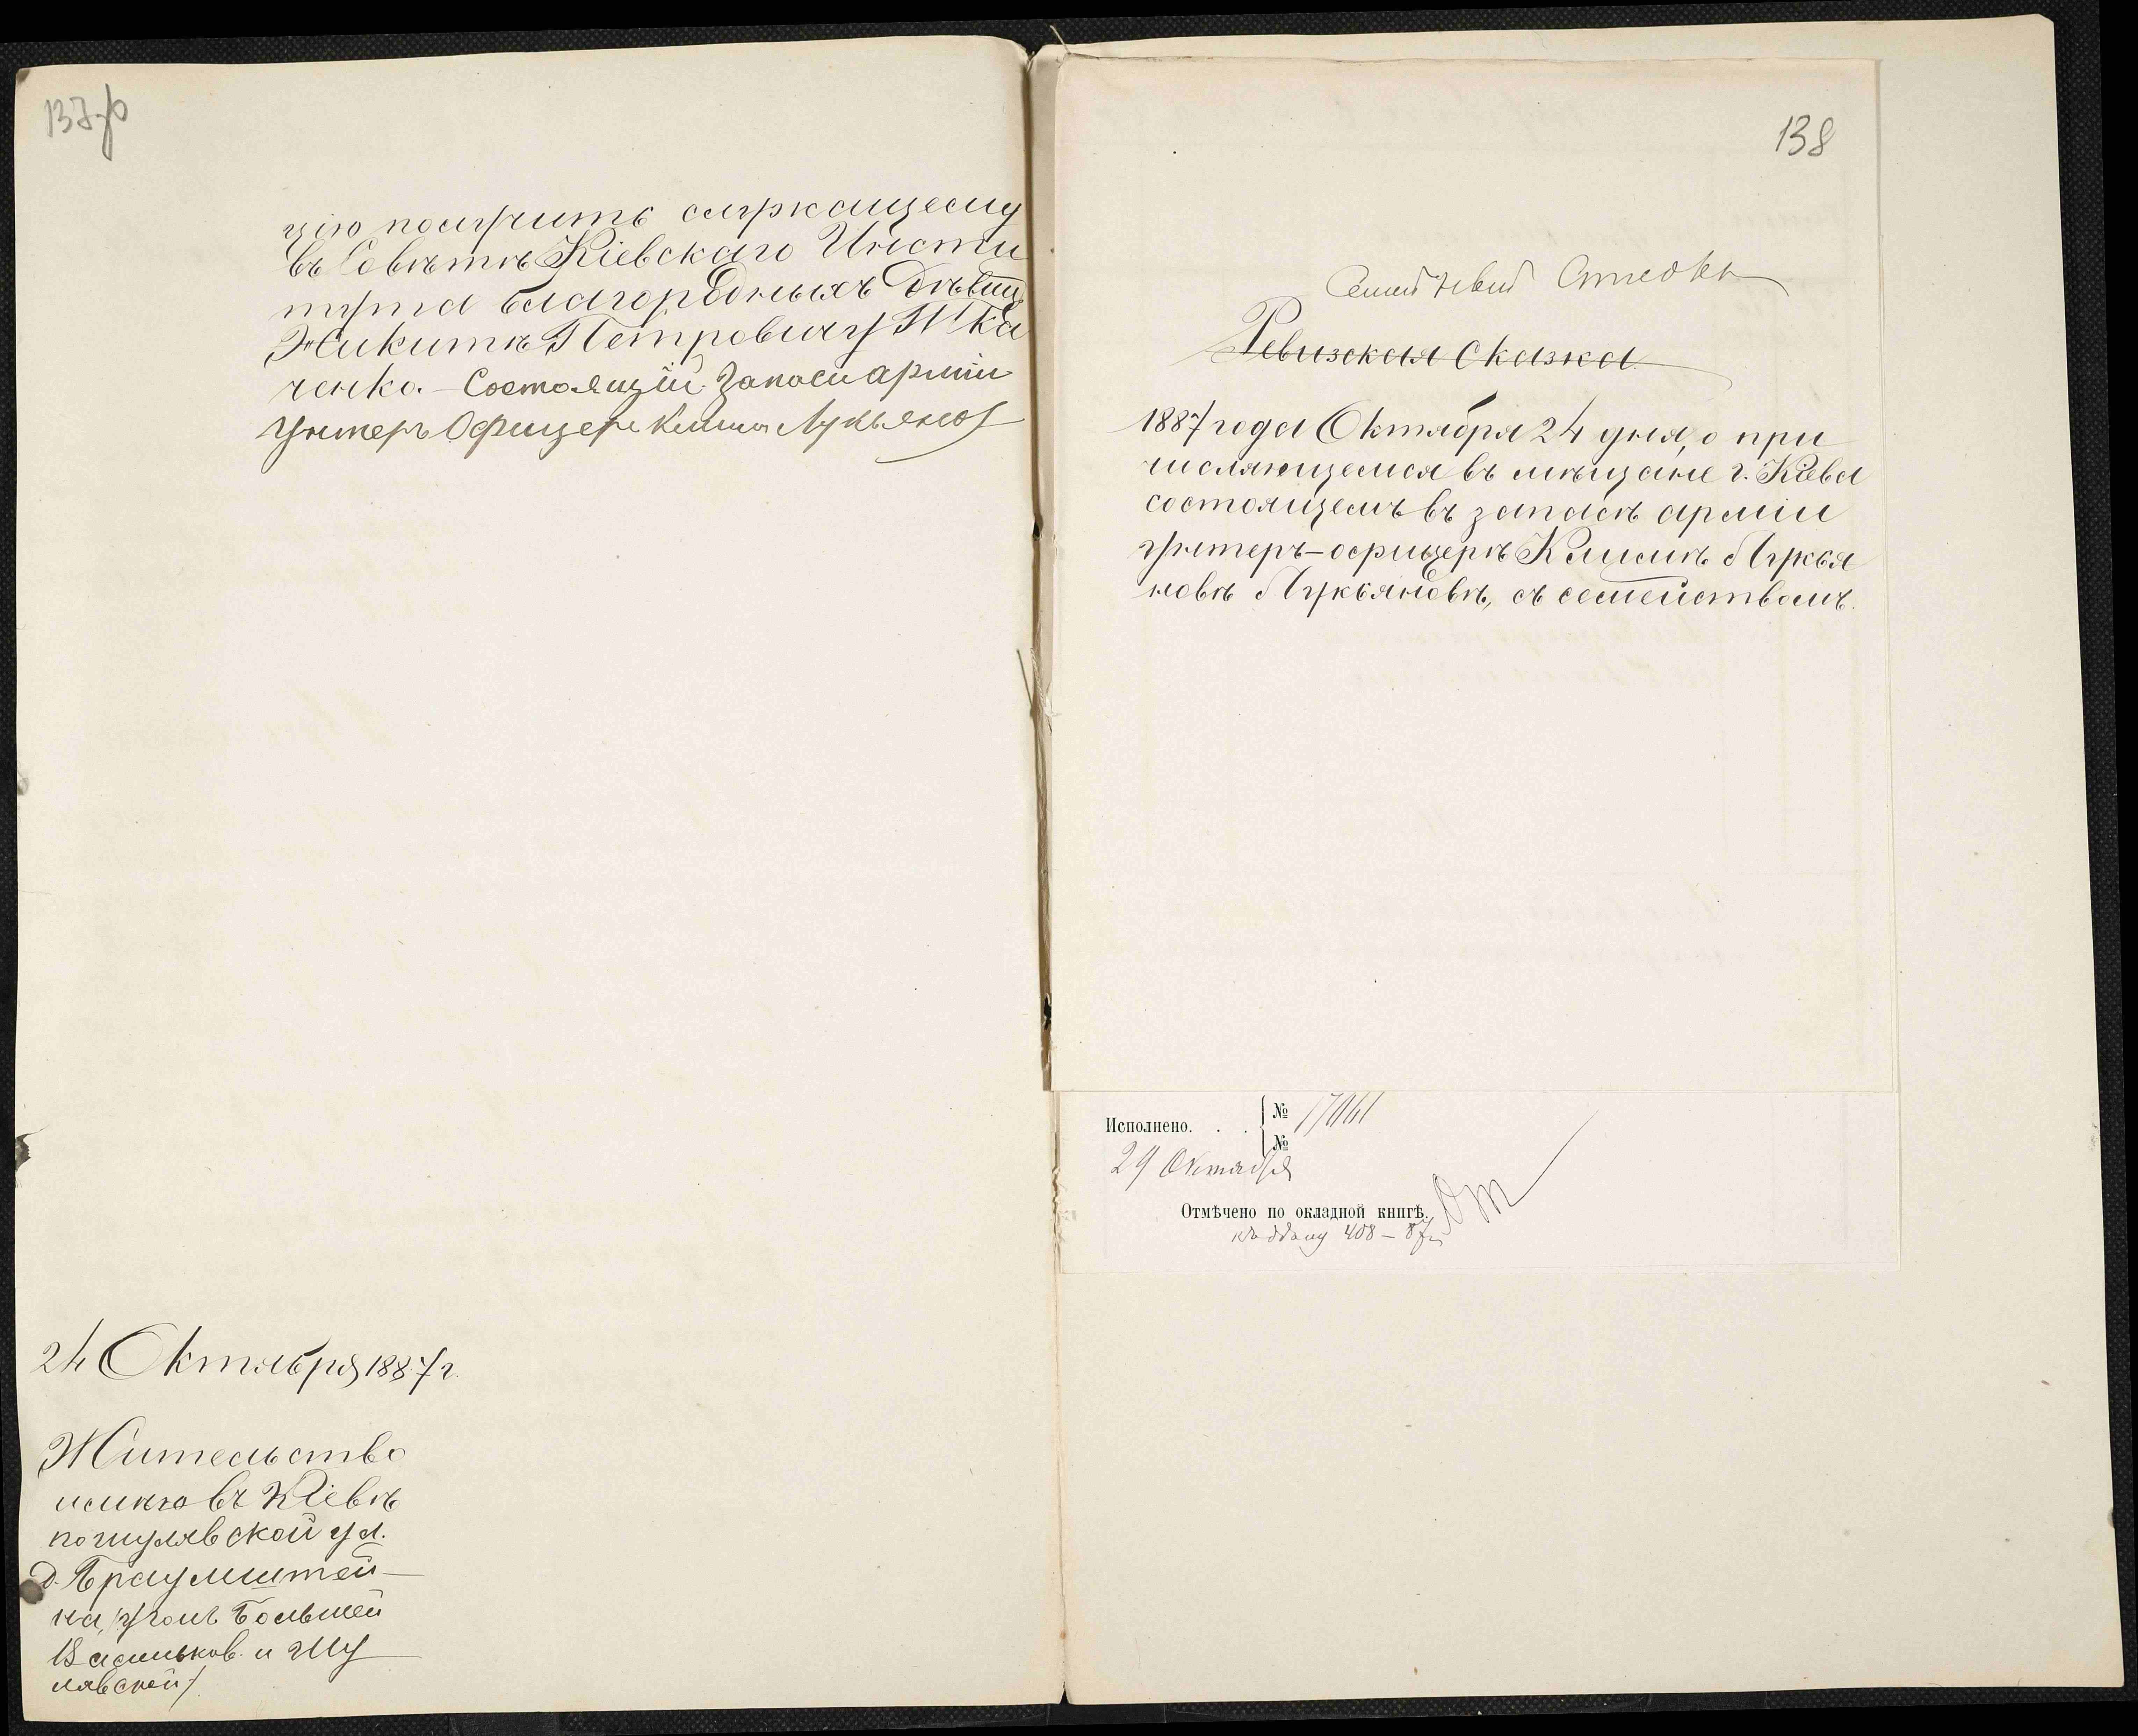 137об
цію получить служащему
въ Совѣтѣ Кіевскаго Инсти
тута благородныхъ Дѣвицъ
Никитѣ Петровичу Тка
ченко. – Состоящій Запаси арміи
Унтеръ Офицеръ Климъ Лукьянов
24 Октября 1887 г.
Жительство
имѣю въ Кіевѣ
по шулявской ул.
д. Браумштей–
на, /уголъ Большей
Васильков. и Шу
лявской/
138
Семейный Списокъ
Ревизская Сказка
1887 года Октября 24 дня, о при
числяющемся въ мѣщане г. Кіева
состоящемъ въ запасѣ арміи
унтеръ–офицерѣ Климѣ Лукья
новѣ Лукьяновѣ, съ семействомъ.
Исполнено. . . № 17061
№
29 Октября
Отмѣчено по окладной книгѣ.
408 – 87